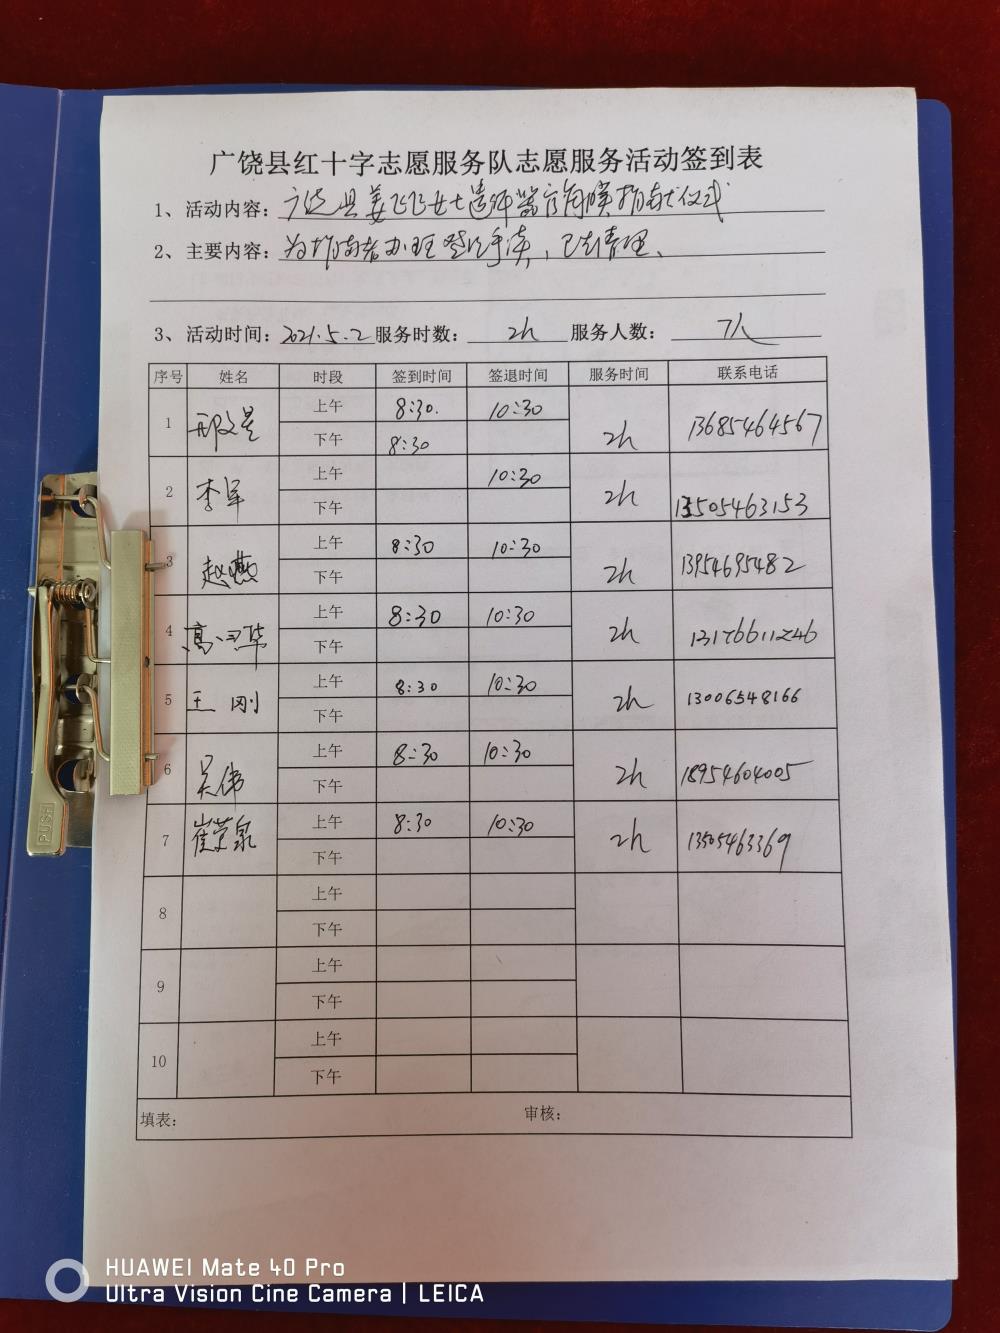 广饶县红十字志愿服务队志愿服务活动签到表
1、活动内容：广饶县姜飞飞女士遗体器官角膜捐献仪式
2、主要内容：为捐献者办理登记手续、
3、活动时间：2021.5.2 服务时数：2h 服务人数：7人
序号 姓名 时段 签到时间 签退时间 服务时间 联系电话
1 邢文星 上午 8:30. 10:30 2h 13685464567
下午 8:30
2 李军 上午 10:30 2h 13505463153
下午
3 赵燕 上午 8:30 10:30 2h 13954695482
下午
4 高卫华 上午 8:30 10:30 2h 13176611246
下午
5 王刚 上午 8:30 10:30 2h 13006548166
下午
6 吴伟 上午 8:30 10:30 2h 18954604005
下午
7 崔荣泉 上午 8:30 10:30 2h 13505463369
下午
8 上午
下午
9 上午
下午
10 上午
下午
填表： 审核：
PUSH
HUAWEI Mate 40 Pro
Ultra Vision Cine Camera | LEICA